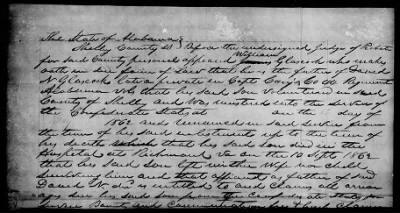 The State of Alabama
Shelby County SS Before the undersigned Judge of Probate
for said County personal appeared William Glascock who makes
oath in due form of Law that he is the father of David
N Glascock late a private in Capt Co Regiment
Alabama Vols that his said Son Volunteered in said
County of Shelby and was mustered into the service of
the Confederate States at on the day of
1862 and remained in said service from
the time of his said enlistment up to the time of
his death that his said Son died in the
Hospital at Richmond Va on the 10 Sept 1862
that his said Son left neither Wife nor child
surviving him and that affiant as father of said
David N. is entitled to and claims all arrear
age due his said Son from the Confederate States for